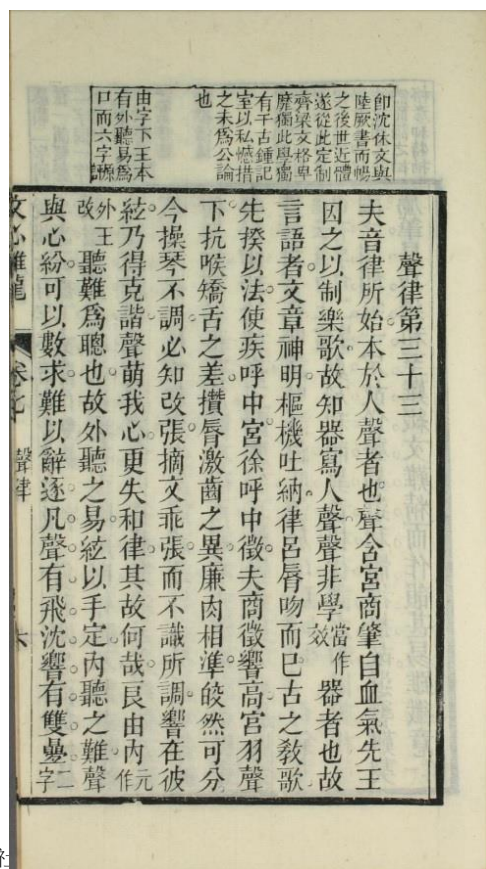 即沈休文與
陸厥書而暢
之後世近體
遂從此定制
齊梁文格卑
靡獨此學獨
有千古鍾記
室以私憾措
之未爲公論
也
由字下王本
有外聽易爲
口而六字
聲律第三十三
夫音律所始本於人聲者也聲含宮商肇自血氣先王
因之以制樂歌故知器寫人聲聲非學當作效器者也故
言語者文章神明樞機吐納律呂脣吻而已古之敎歌
先揆以法使疾呼中宮徐呼中徵夫商徵響高宮羽聲
下抗喉矯舌之差攢脣激齒之異廉肉相準皎然可分
今操琴不調必知改張摘文乖張而不識所調響在彼
絃乃得克諧聲萌我心更失和律其故何哉良由內元作
外王改聽難爲聰也故外聽之易絃以手定內聽之難聲
與心紛可以數求難以辭逐凡聲有飛沈響有雙疊二字
文心雕龍 卷七 聲律 六